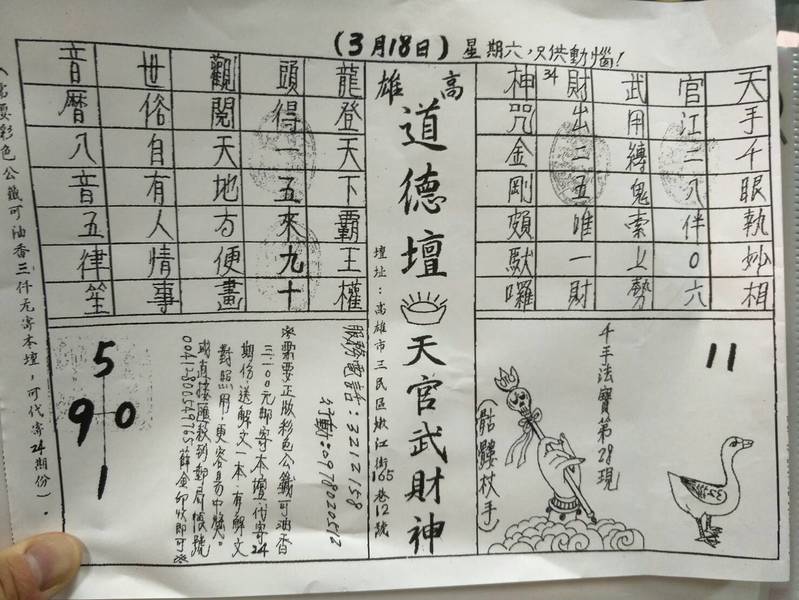 (3月18日) 星期六,只供動惱!
天手千眼執妙相
官江二八伴0六
武用縛鬼索上勢
財出二五唯一財
34
神咒金剛頗馱囉
高雄
道德壇
天官武財神
壇址:高雄市三民區嫩江街165巷12號
龍登天下霸王權
頭得一五來九十
觀閱天地方便畫
世俗自有人情事
音曆八音五律笙
11
千手法寶第28現
(骷髏杖手)
服務電話:3212158
行動:0978020512
※需要正版彩色公籤可油香
三二00元郵寄本壇,代寄24
期份,送解文一本,有解文
對照用,更容易中獎。
或直接匯款到郵局帳號
00412800549765薛金卯收即可※
5
9 0
1
(需要彩色公籤可油香三仟元寄本壇,可代寄24期份)。